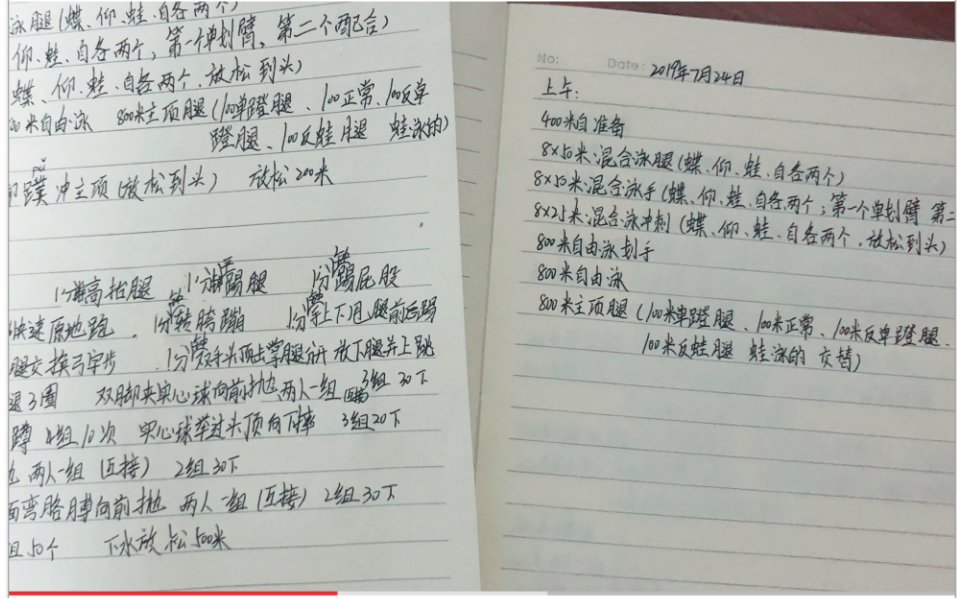 泳腿(蝶、仰、蛙、自各两个)
仰、蛙、自各两个,第一个单划臂、第二个配合)
蝶、仰、蛙、自各两个、放松到头)
00米自由泳 800米主项腿(100单蹬腿、100正常、100反单
蹬腿、100反蛙腿 蛙泳的)
pú
蹼 冲主项(放松到头) 放松200米
1分钟高抬腿 1分钟踢腿 1分钟踢屁股
快速原地跑 1分钟转胯蹦 1分钟上下甩腿前后踢
腿交换弓字步 1分钟双手头顶击掌腿分开 放下腿并上跳
退3圈 双脚夹实心球向前抛 两人一组 3组 30下
蹲 4组10次 实心球举过头顶向下摔 3组20下
两人一组(互接) 2组30下
面弯胳膊向前抛 两人一组(互接) 2组30下
组50个 下水放松500米
No: Date: 2019年7月24日
上午:
400米自准备
8×50米混合泳腿(蝶、仰、蛙、自各两个)
8×50米混合泳手(蝶、仰、蛙、自各两个;第一个单划臂 第二
8×25米混合泳冲刺(蝶、仰、蛙、自各两个、放松到头)
800米自由泳划手
800米自由泳
800米主项腿(100米单蹬腿、100米正常、100米反单蹬腿、
100米反蛙腿 蛙泳的 交替)